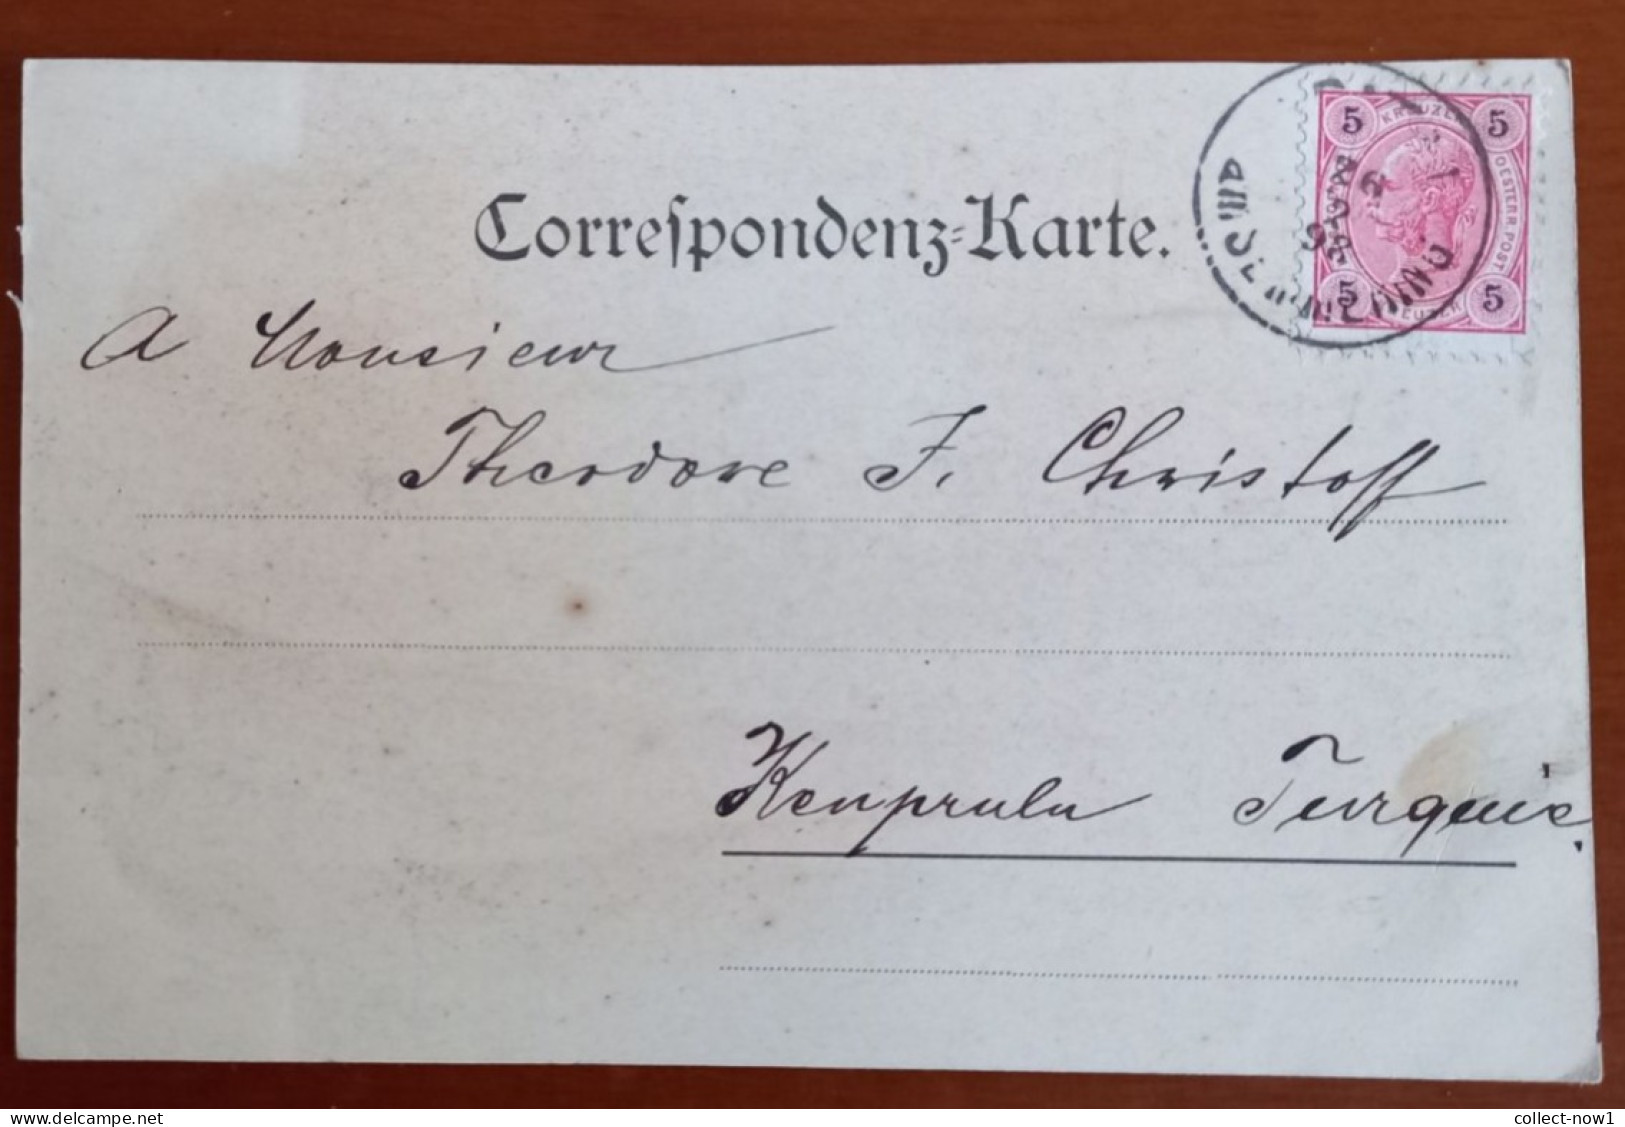 Correſpondenz-Karte.
5 KREUZER 5
OESTERR. POST
5 KREUZER 5
A Monsieur
Theodore J. Christoff
Keuprulu Turquie.
collect-now1